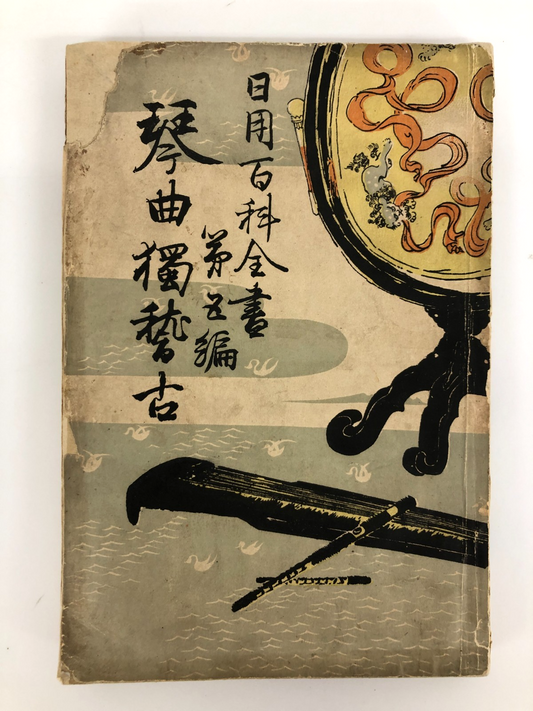 日用百科全書
第五編
琴曲獨稽古